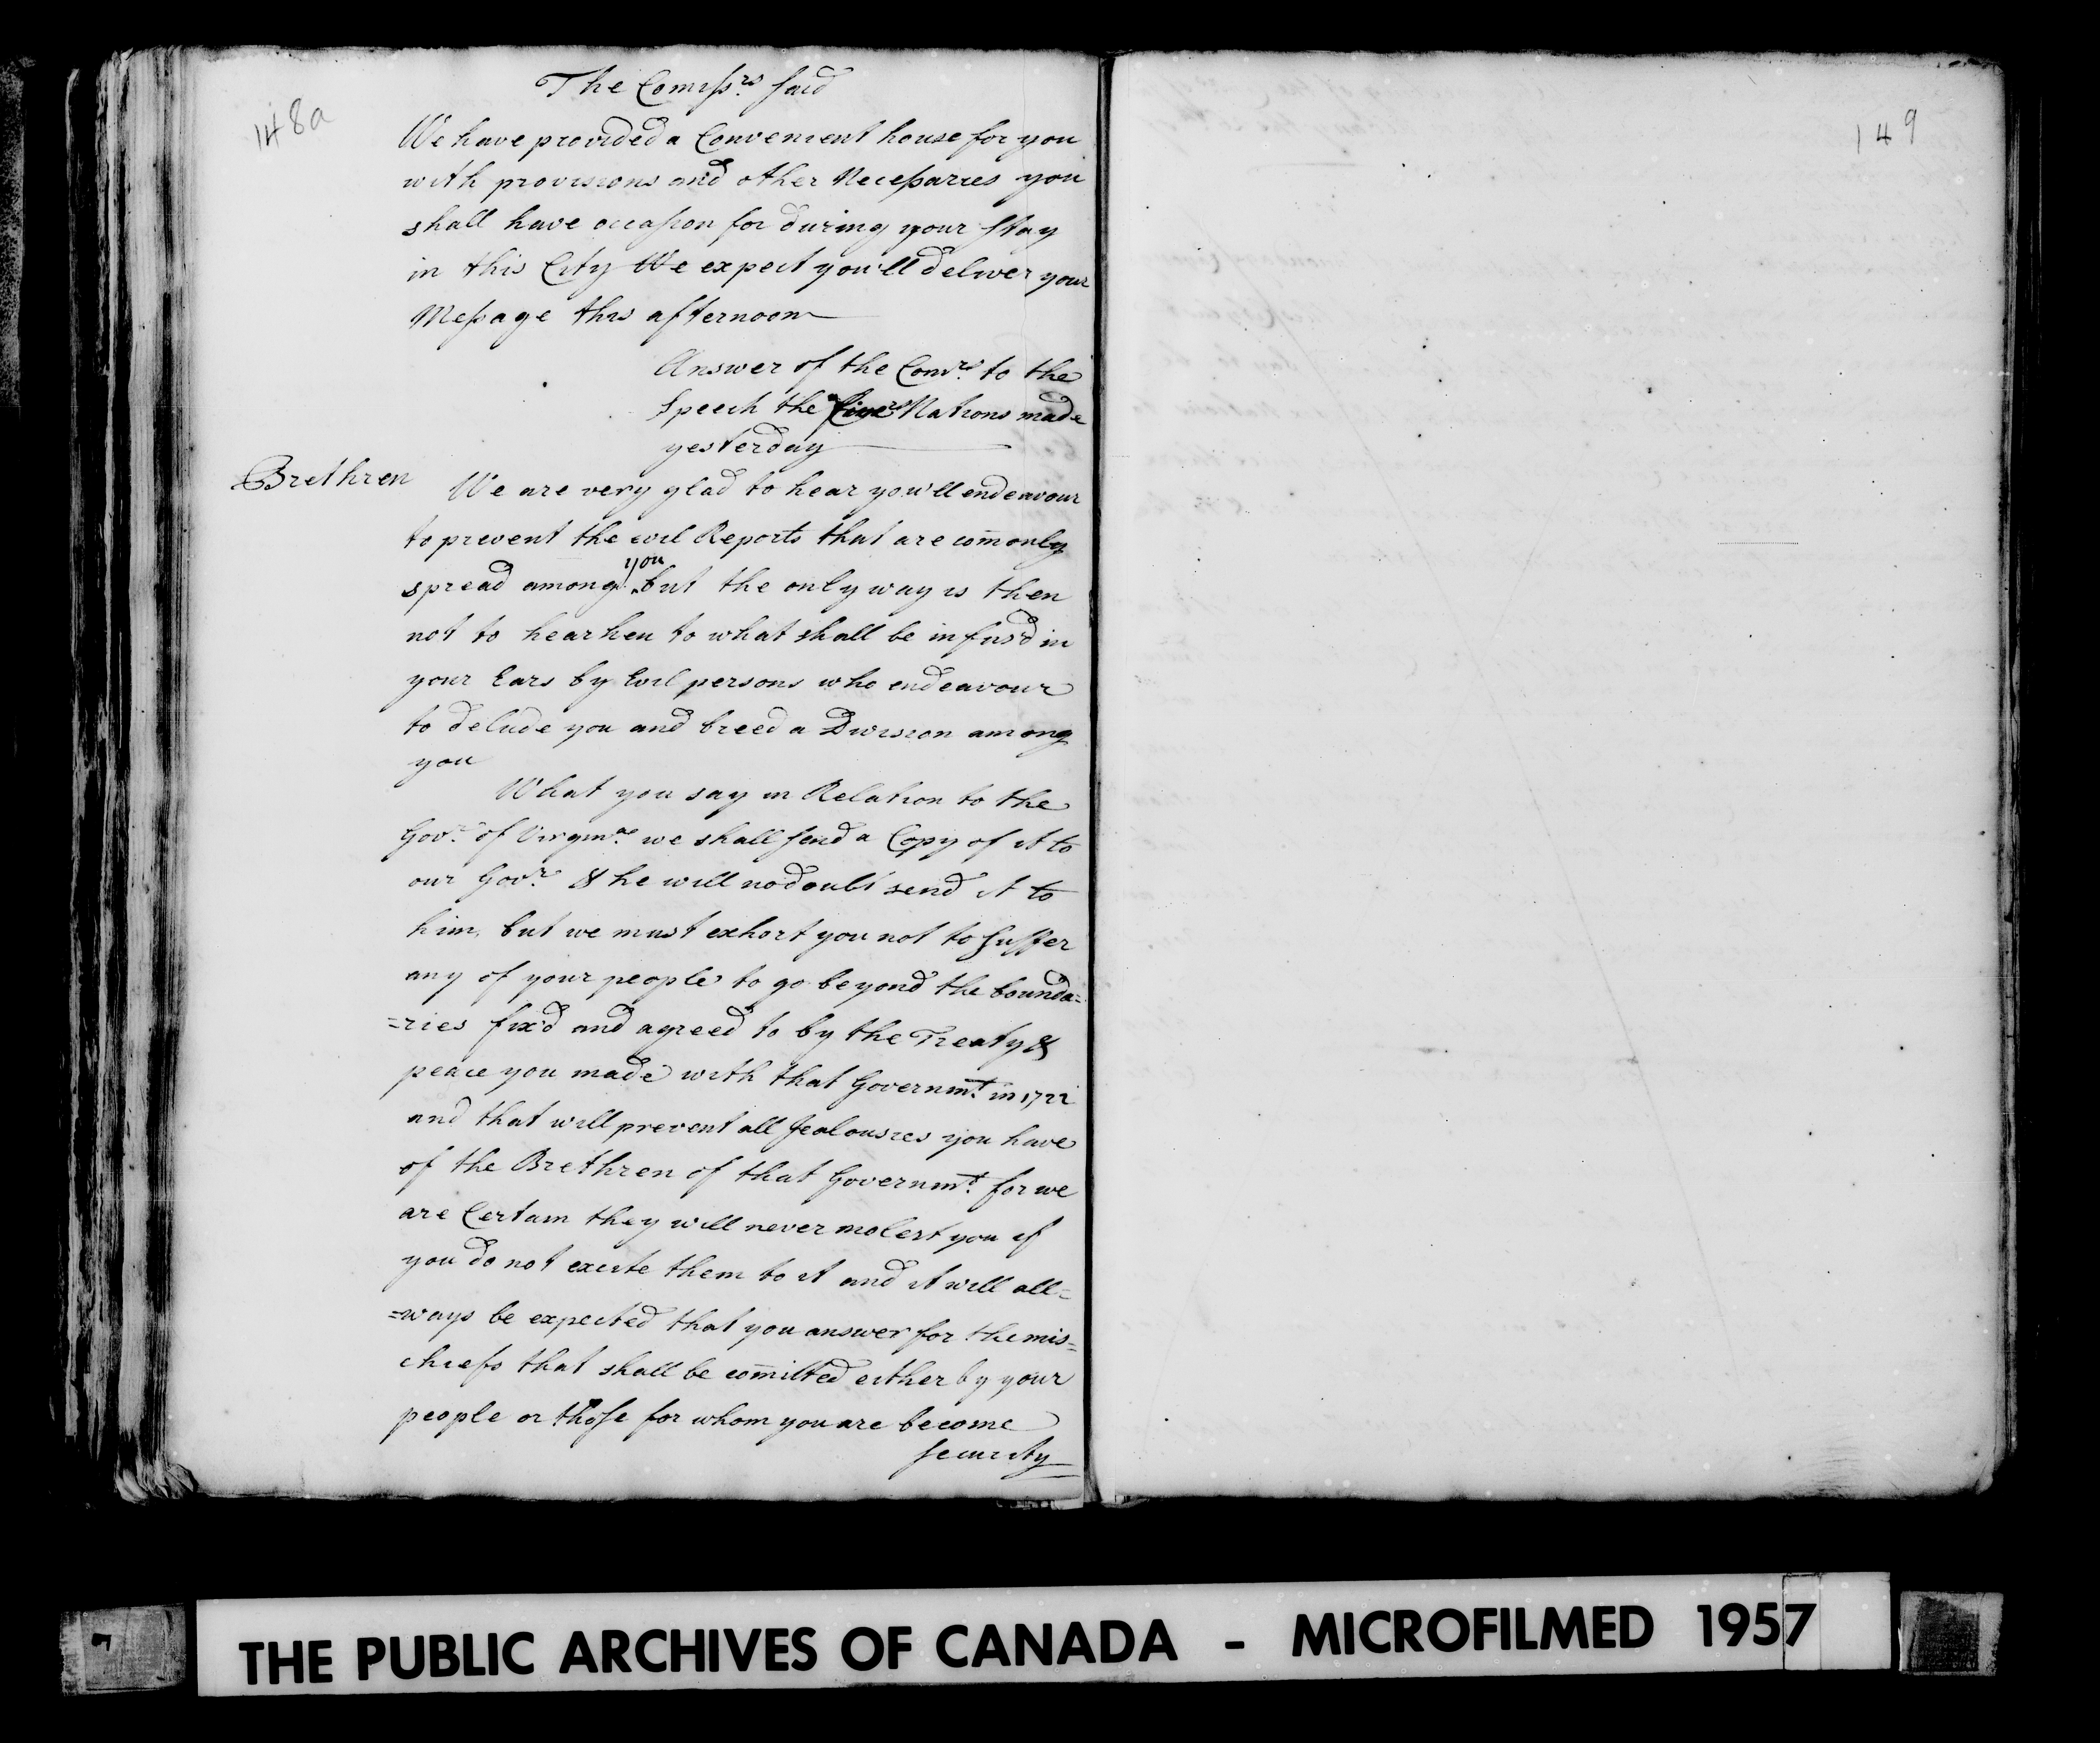 148a
The Comiss.rs said
We have provided a Convenient house for you
with provisions and other Necessaries you
shall have occasion for during your stay
in this City We expect you'll deliver your
Message this afternoon
Answer of the Com.rs to the
Speech the Nations made
yesterday
Brethren
We are very glad to hear you'll endeavour
to prevent the evil Reports that are com̄only
spread among you but the only way is then
not to hearken to what shall be infus'd in
your Ears by Evil persons who endeavour
to delude you and breed a Division among
you
What you say in Relation to the
Gov.r of Virgin.ae we shall send a Copy of it to
our Gov.r & he will no doubt send it to
him, but we must exhort you not to suffer
any of your people to go beyond the bounda=
=ries fix'd and agreed to by the Treaty &
peace you made with that Governm.t in 1722
and that will prevent all Jealousies you have
of the Brethren of that Governm.t for we
are Certain they will never molest you if
you do not excite them to it and it will all=
=ways be expected that you answer for the mis=
chiefs that shall be com̄itted either by your
people or those for whom you are become
security
149
THE PUBLIC ARCHIVES OF CANADA - MICROFILMED 1957